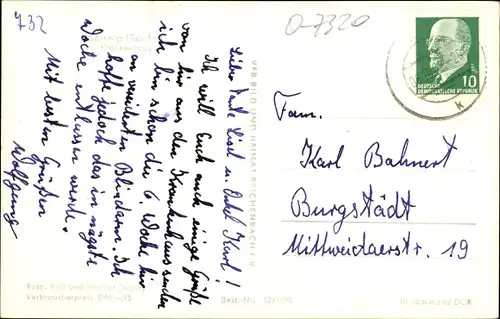 732
0-7320
10
DEUTSCHE
DEMOKRATISCHE REPUBLIK
K
Liebe Tante Liesel u. Onkel Karl!
Ich will Euch auch einige Grüße
von hier aus dem Krankenhaus senden
ich bin schon die 6 Woche hier
an vereiterten Blinddarm. Ich
hoffe jedoch das in nächste
Woche entlassen werde.
Mit besten Grüßen
Wolfgang
VEB BILD UND HEIMAT REICHENBACH I. V.
Fam.
Karl Bahnert
Burgstädt
Mittweidaerstr. 19
Foto: Bild und Heimat
Verbraucherpreis DM —,15
Best.-Nr.